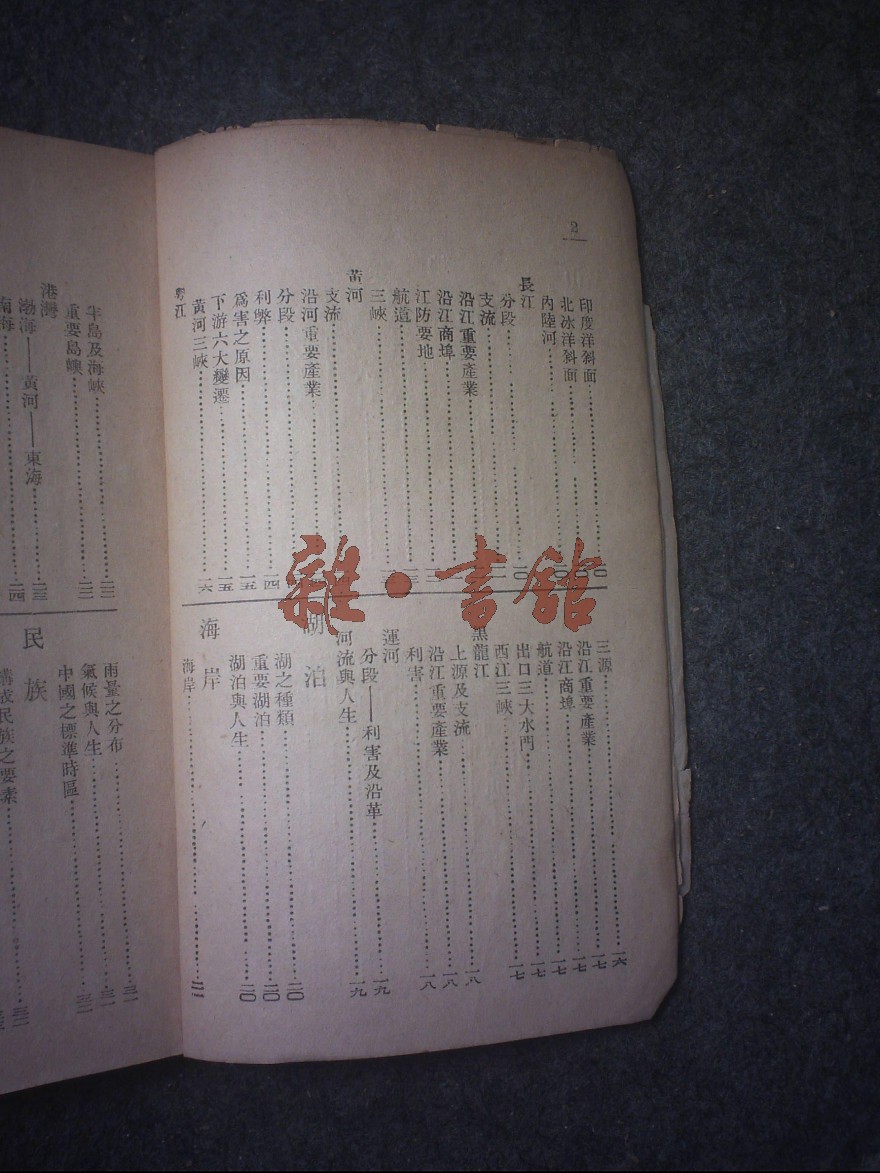 2
印度洋斜面
北冰洋斜面
內陸河
長江
分段
支流
沿江重要產業
沿江商埠
江防要地
航道
三峽
黃河
支流
沿河重要產業
分段
利弊
為害之原因 一五
下游六大變遷 一五
黃河三峽 一六
粵江
三源 一六
沿江重要產業 一七
沿江商埠 一七
航道 一七
出口三大水門 一七
西江三峽 一七
黑龍江
上源及支流 一八
沿江重要產業 一八
利害 一八
運河
分段——利害及沿革 一九
河流與人生 一九
湖泊
湖之種類 二〇
重要湖泊 二〇
湖泊與人生 二〇
海岸
海岸
半島及海峽
重要島嶼
港灣
渤海——黃河——東海 二三
南海 二四
雨量之分布
氣候與人生
中國之標準時區
民族
構成民族之要素
雜·書館